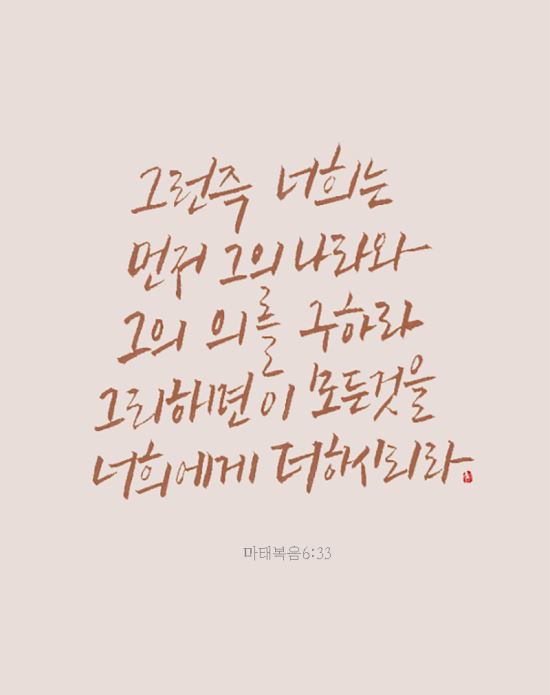 그런즉 너희는
먼저 그의 나라와
그의 의를 구하라
그리하면 이 모든 것을
너희에게 더하시리라
마태복음6:33